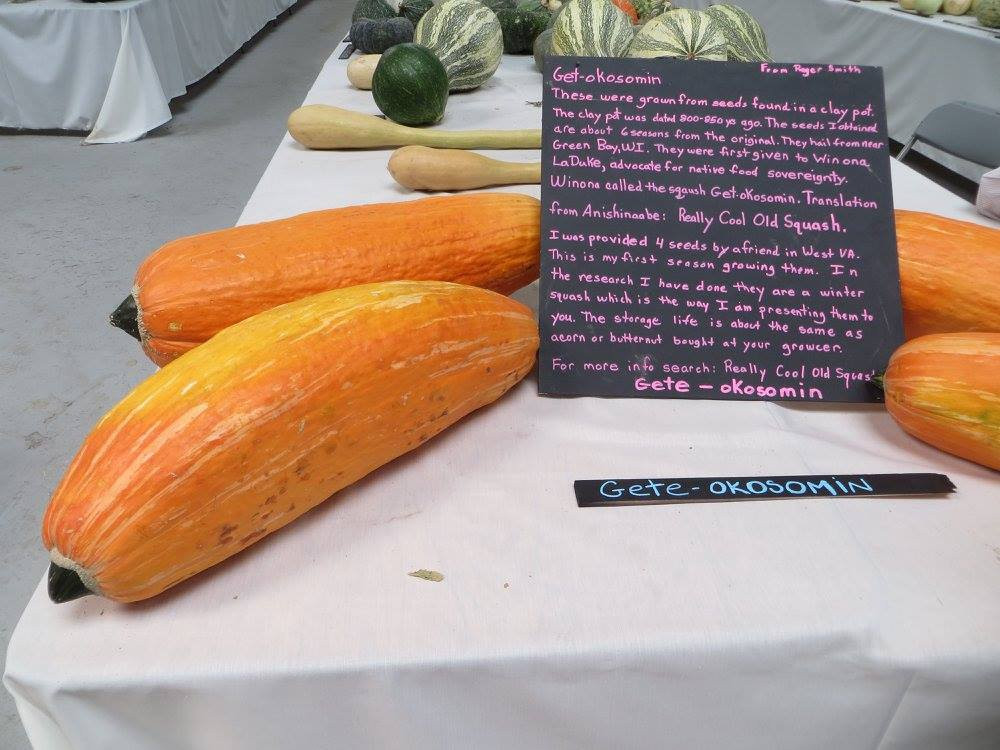 From Roger Smith
Get-okosomin
These were grown from seeds found in a clay pot.
The clay pot was dated 800-850 ys ago. The seeds I obtained
are about 6 seasons from the original. They hail from near
Green Bay, WI. They were first given to Winona
LaDuke, advocate for native food sovereignty.
Winona called the sqaush Get-okosomin. Translation
from Anishinaabe: Really Cool Old Squash.
I was provided 4 seeds by a friend in West VA.
This is my first season growing them. In
the research I have done they are a winter
squash which is the way I am presenting them to
you. The storage life is about the same as
acorn or butternut bought at your growcer.
For more info search: Really Cool Old Squas
Gete - okosomin
Gete-OKOSOMIN